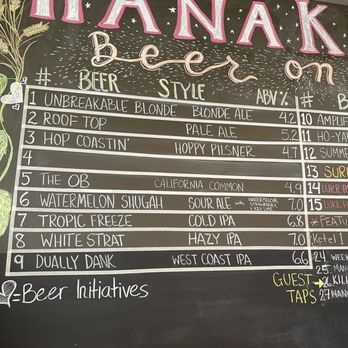 HANAK
Beer on
# BEER STYLE ABV%
1 UNBREAKABLE BLONDE BLONDE ALE 4.2
2 ROOF TOP PALE ALE 5.2
3 HOP COASTIN' HOPPY PILSNER 4.7
4
5 THE OB CALIFORNIA COMMON 4.9
6 WATERMELON SHUGAH SOUR ALE with WATERMELON STRAWBERRY KEY LIME 7.0
7 TROPIC FREEZE COLD IPA 6.8
8 WHITE STRAT HAZY IPA 7.0
9 DUALLY DANK WEST COAST IPA 6.6
=Beer Initiatives
# B
10 AMPLIF
11 HO-YA
12 SUMME
13 SUR
14 LUKR, PO
15 LUKR, PO
* FEATU
(Ketel 1
24 WEEK
25 MAN
GUEST TAPS
26 KILI
27 MANA